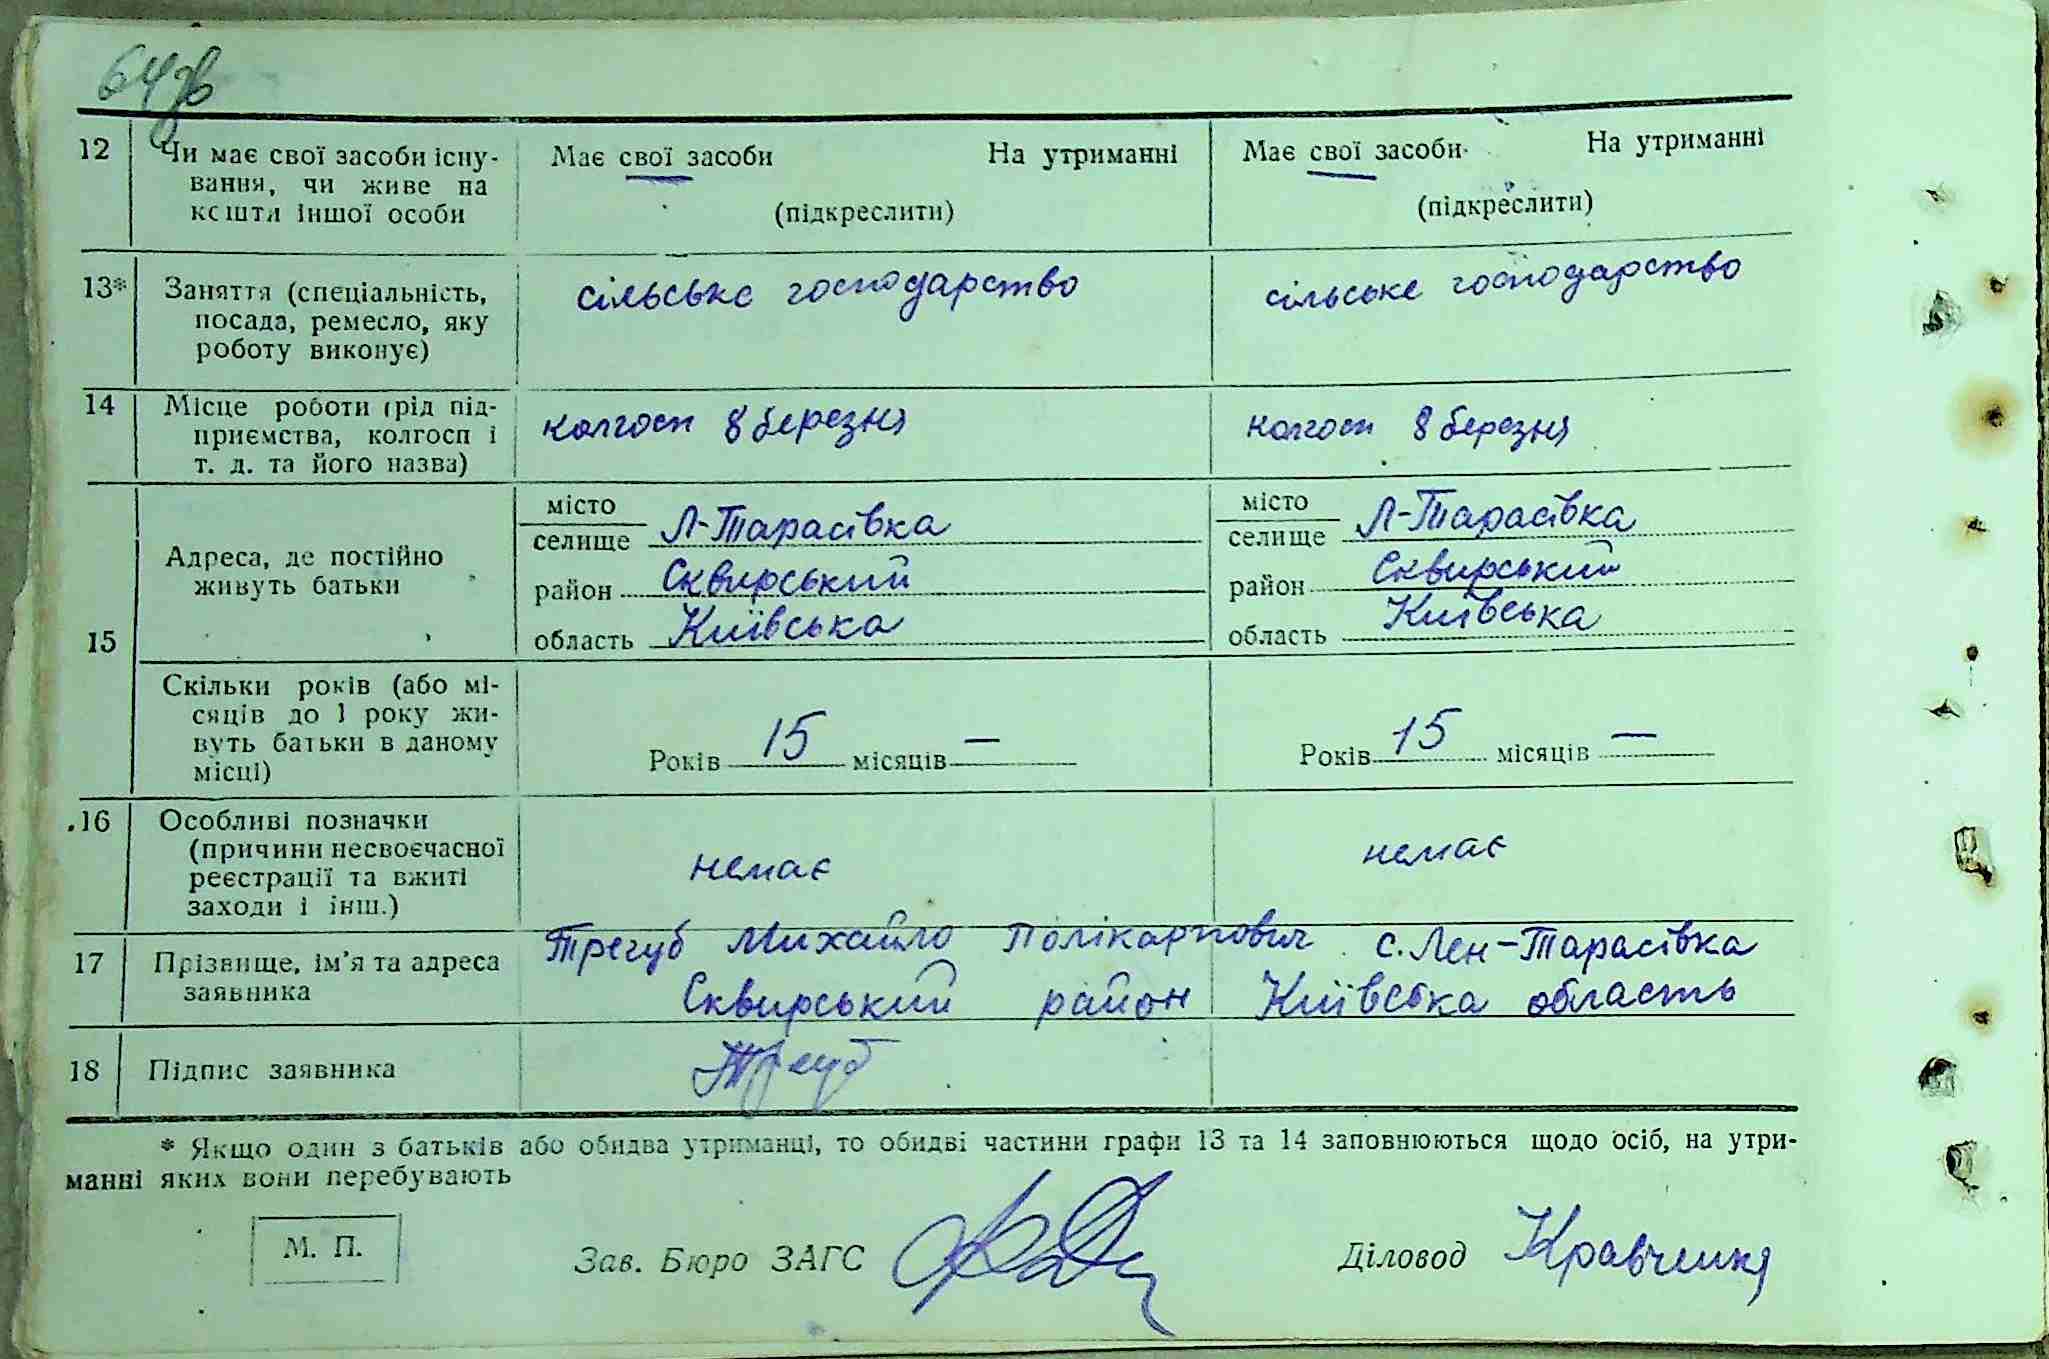 64зв
12 Чи має свої засоби існу- Має свої засоби На утриманні Має свої засоби На утриманні
вання, чи живе на
кошти іншої особи (підкреслити) (підкреслити)
13* Заняття (спеціальність, сільське господарство сільське господарство
посада, ремесло, яку
роботу виконує)
14 Місце роботи (рід під- колгосп 8 березня колгосп 8 березня
приємства, колгосп і
т. д. та його назва)
15 Адреса, де постійно
живуть батьки
місто місто
селище Л-Тарасівка селище Л-Тарасівка
район Сквирський район Сквирський
область Київська область Київська
Скільки років (або мі-
сяців до 1 року жи-
вуть батьки в даному
місці)
Років 15 місяців — Років 15 місяців —
16 Особливі позначки
(причини несвоєчасної немає немає
реєстрації та вжиті
заходи і інш.)
17 Прізвище, ім'я та адреса Трегуб Михайло Полікарпович с. Лен-Тарасівка
заявника Сквирський район Київська область
18 Підпис заявника Трегуб
* Якщо один з батьків або обидва утриманці, то обидві частини графи 13 та 14 заповнюються щодо осіб, на утри-
манні яких вони перебувають
М. П. Зав. Бюро ЗАГС Діловод